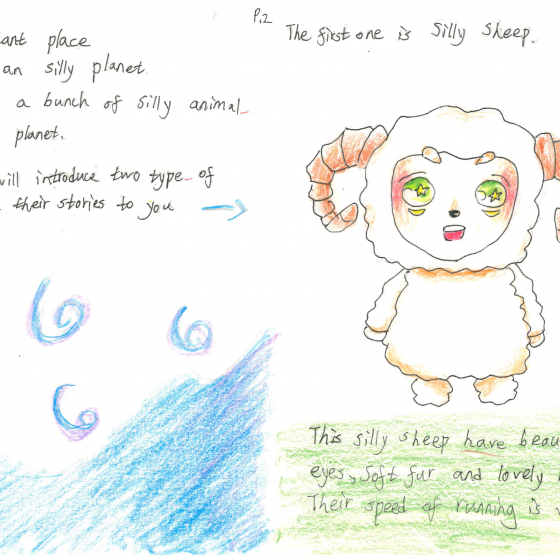 tant place
an silly planet.
a bunch of silly animal
planet.
will introduce two type of
their stories to you
P.2
The first one is Silly Sheep.
This silly sheep have beau
eyes, soft fur and lovely
Their speed of running is